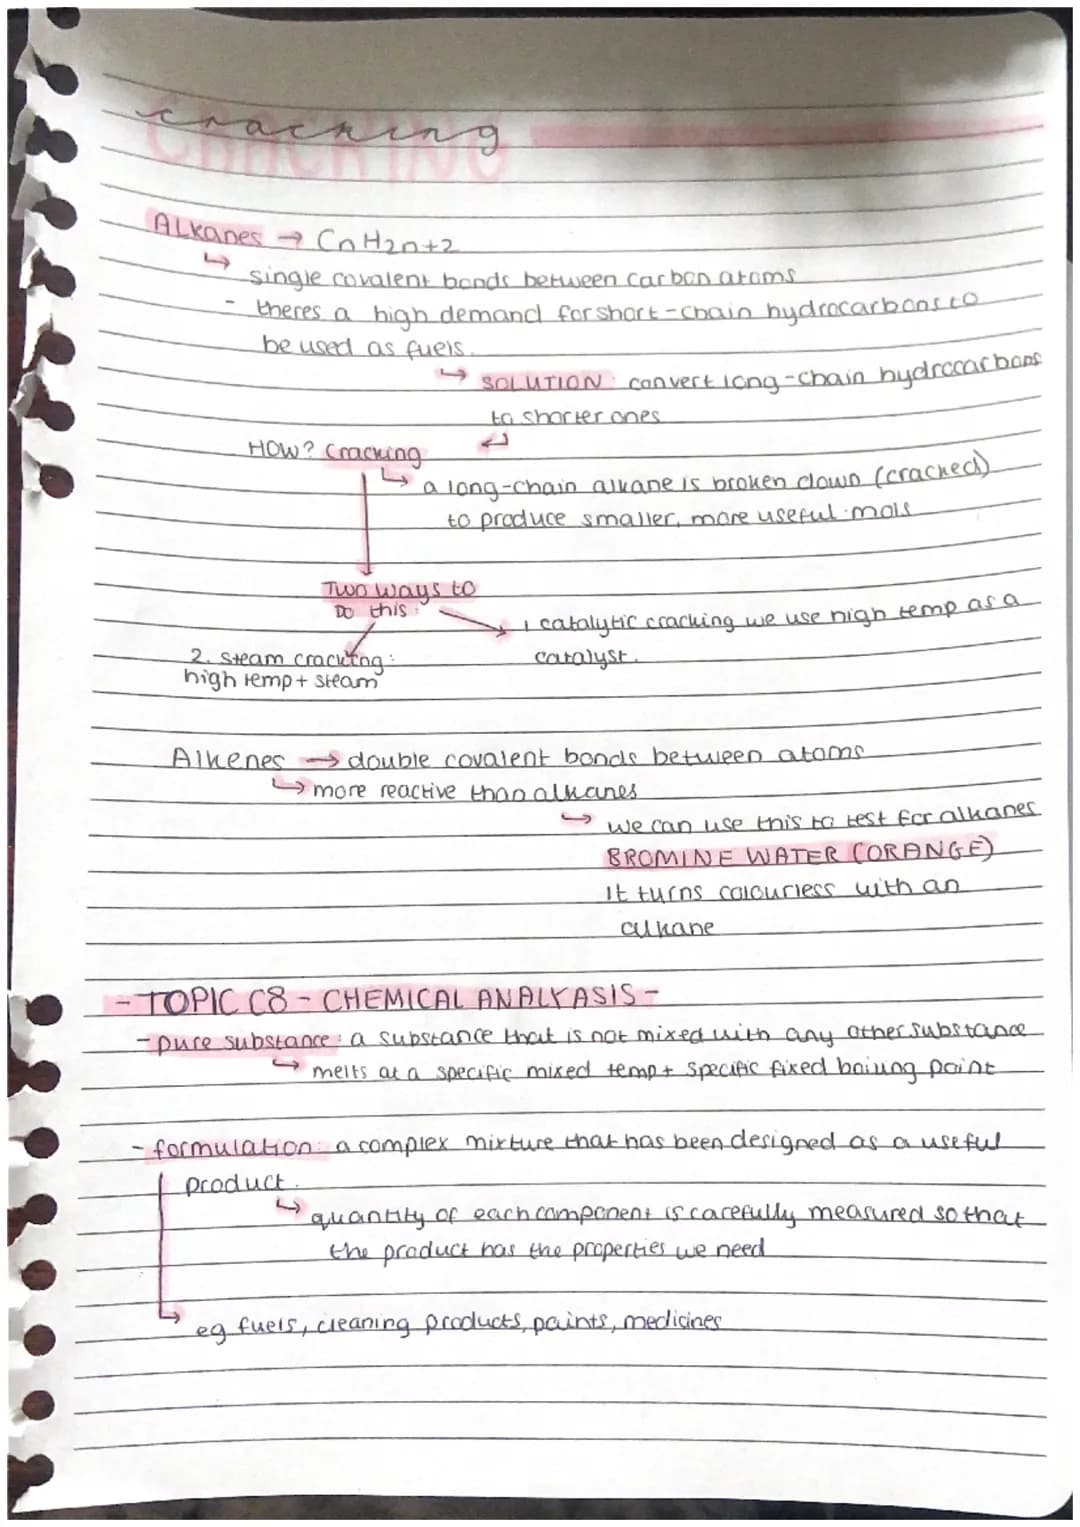 CRACKING
cracking
ALkanes → CnH2n+2
↳ single covalent bonds between carbon atoms
- theres a high demand for short-chain hydrocarbons to
be used as fuels.
↳ SOLUTION: convert long-chain hydrocarbons
to shorter ones
HOW? Cracking
↳ a long-chain alkane is broken down (cracked)
to produce smaller, more useful mols
Two ways to
Do this:
1 catalytic cracking we use high temp as a
catalyst.
2. Steam cracking:
high temp + steam
Alkenes → double covalent bonds between atoms
↳ more reactive than alkanes
↳ we can use this to test for alkanes
BROMINE WATER (ORANGE)
It turns colourless with an
alkane
- TOPIC C8 - CHEMICAL ANALYASIS -
- pure substance: a substance that is not mixed with any other substance
↳ melts at a specific mixed temp + specific fixed boiling point
- formulation: a complex mixture that has been designed as a useful
product.
↳ quantity of each component is carefully measured so that
the product has the properties we need
↳ eg fuels, cleaning products, paints, medicines